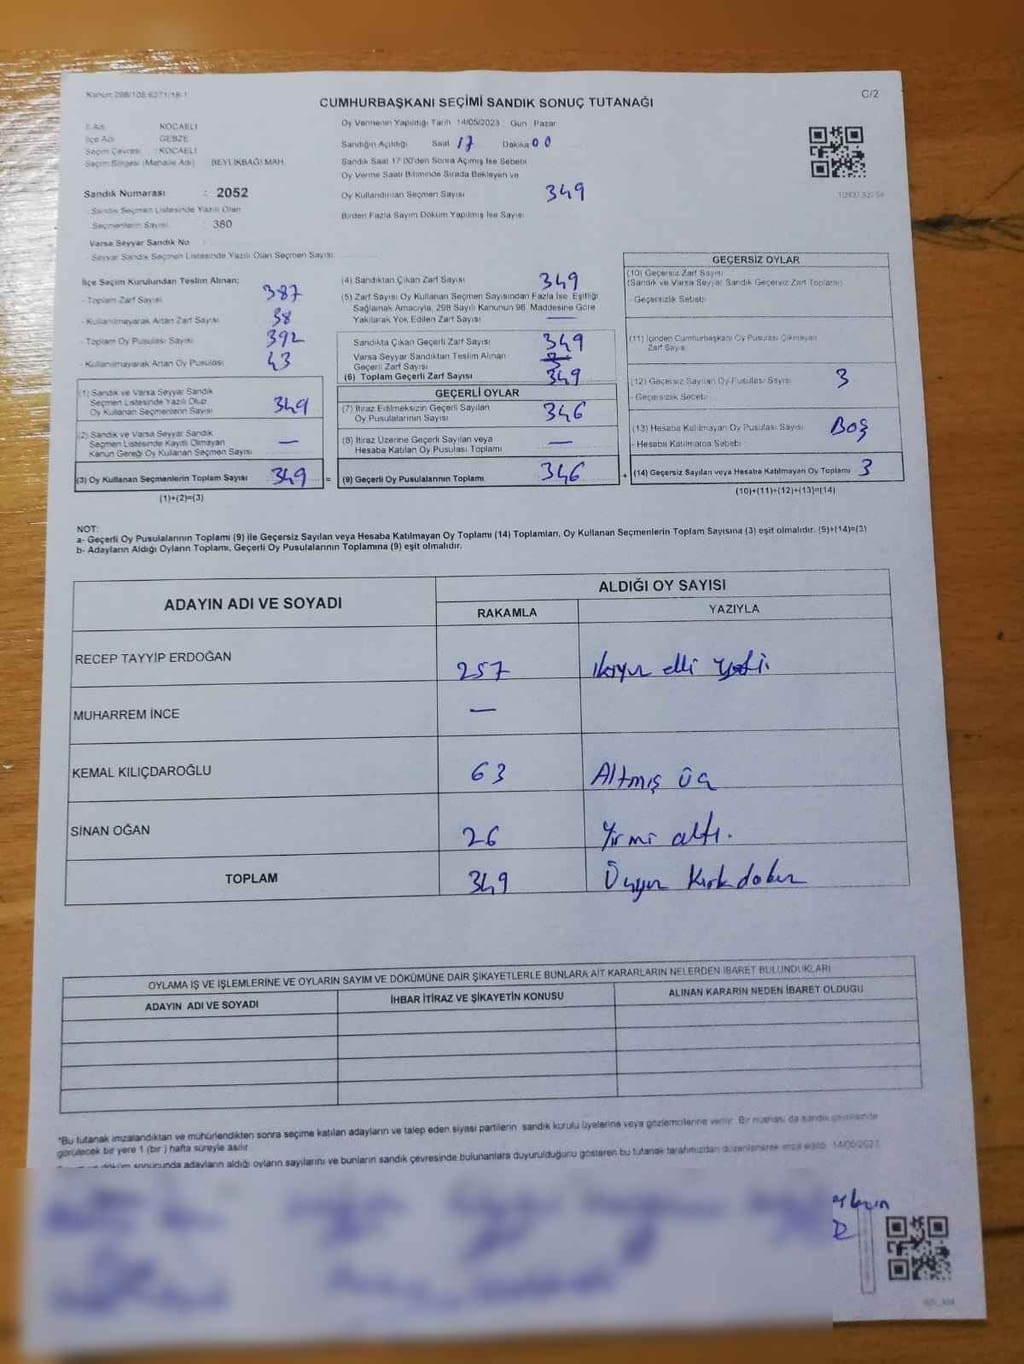 Kanun: 298/105-6271/18-1
C/2
CUMHURBAŞKANI SEÇİMİ SANDIK SONUÇ TUTANAĞI
İl Adı KOCAELİ
İlçe Adı GEBZE
Seçim Çevresi : KOCAELİ
Seçim Bölgesi (Mahalle Adı) BEYLİKBAĞI MAH.
Sandık Numarası : 2052
Sandık Seçmen Listesinde Yazılı Olan
Seçmenlerin Sayısı : 380
Varsa Seyyar Sandık No
- Seyyar Sandık Seçmen Listesinde Yazılı Olan Seçmen Sayısı
Oy Vermenin Yapıldığı Tarih 14/05/2023 Gün Pazar
Sandığın Açıldığı Saat 17 Dakika 00
Sandık Saat 17:00'den Sonra Açılmış İse Sebebi
Oy Verme Saati Bitiminde Sırada Bekleyen ve
Oy Kullandırılan Seçmen Sayısı 349
Birden Fazla Sayım Döküm Yapılmış İse Sayısı
İlçe Seçim Kurulundan Teslim Alınan;
- Toplam Zarf Sayısı 387
- Kullanılmayarak Artan Zarf Sayısı 38
- Toplam Oy Pusulası Sayısı 392
- Kullanılmayarak Artan Oy Pusulası 43
(1) Sandık ve Varsa Seyyar Sandık
Seçmen Listesinde Yazılı Olup
Oy Kullanan Seçmenlerin Sayısı 349
(2) Sandık ve Varsa Seyyar Sandık
Seçmen Listesinde Kayıtlı Olmayan
Kanun Gereği Oy Kullanan Seçmen Sayısı —
(3) Oy Kullanan Seçmenlerin Toplam Sayısı 349 =
(1)+(2)=(3)
(4) Sandıktan Çıkan Zarf Sayısı 349
(5) Zarf Sayısı Oy Kullanan Seçmen Sayısından Fazla İse, Eşitliği
Sağlamak Amacıyla, 298 Sayılı Kanunun 98. Maddesine Göre
Yakılarak Yok Edilen Zarf Sayısı —
Sandıkta Çıkan Geçerli Zarf Sayısı 349
Varsa Seyyar Sandıktan Teslim Alınan
Geçerli Zarf Sayısı
(6) Toplam Geçerli Zarf Sayısı 349
GEÇERLİ OYLAR
(7) İtiraz Edilmeksizin Geçerli Sayılan
Oy Pusulalarının Sayısı 346
(8) İtiraz Üzerine Geçerli Sayılan veya
Hesaba Katılan Oy Pusulası Toplamı —
(9) Geçerli Oy Pusulalarının Toplamı 346 +
GEÇERSİZ OYLAR
(10) Geçersiz Zarf Sayısı
(Sandık ve Varsa Seyyar Sandık Geçersiz Zarf Toplamı)
- Geçersizlik Sebebi
(11) İçinden Cumhurbaşkanı Oy Pusulası Çıkmayan
Zarf Sayısı
(12) Geçersiz Sayılan Oy Pusulası Sayısı 3
- Geçersizlik Sebebi
(13) Hesaba Katılmayan Oy Pusulası Sayısı Boş
- Hesaba Katılmama Sebebi
(14) Geçersiz Sayılan veya Hesaba Katılmayan Oy Toplamı 3
(10)+(11)+(12)+(13)=(14)
NOT:
a- Geçerli Oy Pusulalarının Toplamı (9) ile Geçersiz Sayılan veya Hesaba Katılmayan Oy Toplamı (14) Toplamları, Oy Kullanan Seçmenlerin Toplam Sayısına (3) eşit olmalıdır. (9)+(14)=(3)
b- Adayların Aldığı Oyların Toplamı, Geçerli Oy Pusulalarının Toplamına (9) eşit olmalıdır.
ADAYIN ADI VE SOYADI
ALDIĞI OY SAYISI
RAKAMLA YAZIYLA
RECEP TAYYİP ERDOĞAN 257 ikiyüz elli yedi.
MUHARREM İNCE —
KEMAL KILIÇDAROĞLU 63 Altmış üç
SİNAN OĞAN 26 Yirmi altı.
TOPLAM 349 Üçyüz Kırkdokuz
OYLAMA İŞ VE İŞLEMLERİNE VE OYLARIN SAYIM VE DÖKÜMÜNE DAİR ŞİKAYETLERLE BUNLARA AİT KARARLARIN NELERDEN İBARET BULUNDUKLARI
ADAYIN ADI VE SOYADI İHBAR İTİRAZ VE ŞİKAYETİN KONUSU ALINAN KARARIN NEDEN İBARET OLDUĞU
*Bu tutanak imzalandıktan ve mühürlendikten sonra seçime katılan adayların ve talep eden siyasi partilerin sandık kurulu üyelerine veya gözlemcilerine verilir. Bir nüshası da sandık çevresinde
görülecek bir yere 1 (bir) hafta süreyle asılır.
döküm sonucunda adayların aldığı oyların sayılarını ve bunların sandık çevresinde bulunanlara duyurulduğunu gösteren bu tutanak tarafımızdan düzenlenerek imza edildi. 14/05/2023